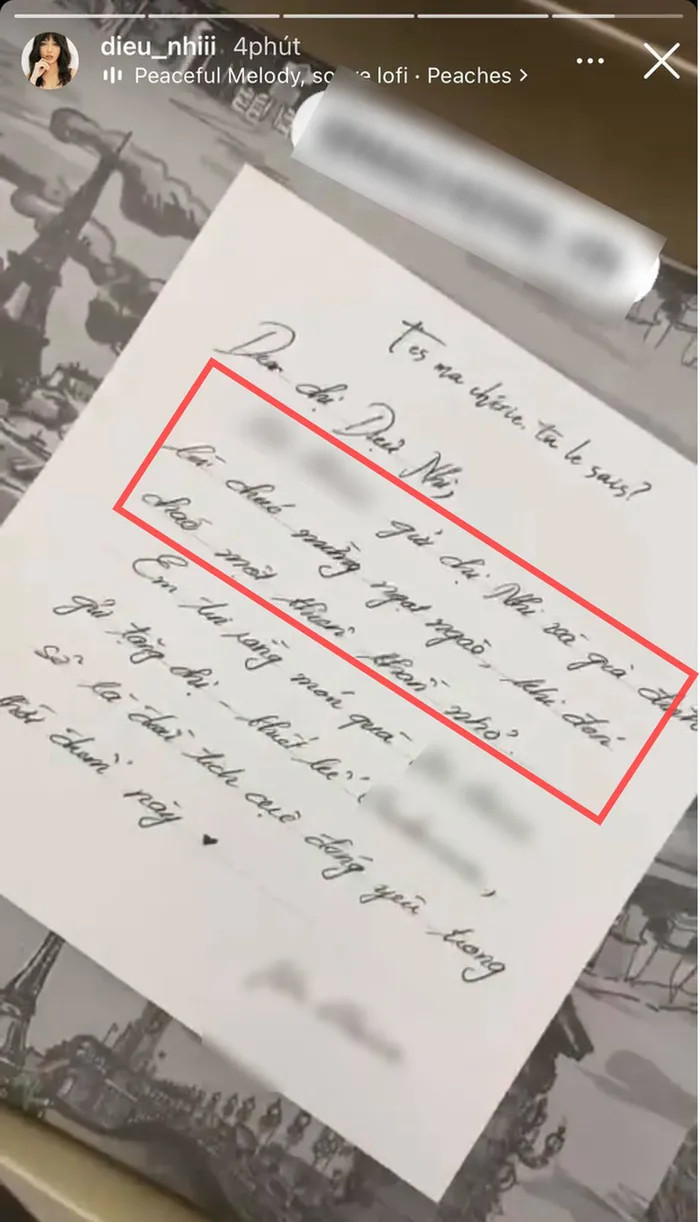 dieu_nhiii 4phút
Peaceful Melody, so lofi · Peaches >
T'es ma chérie, tu le sais?
Dear chị Diệu Nhi,
gửi chị Nhi và gia đình
lời chúc mừng ngọt ngào, khi đón
chào một thiên thần nhỏ.
Em tin rằng món quà
gửi tặng chị - thiết kế
sẽ là dấu tích cực đáng yêu trong
thời điểm này ♥